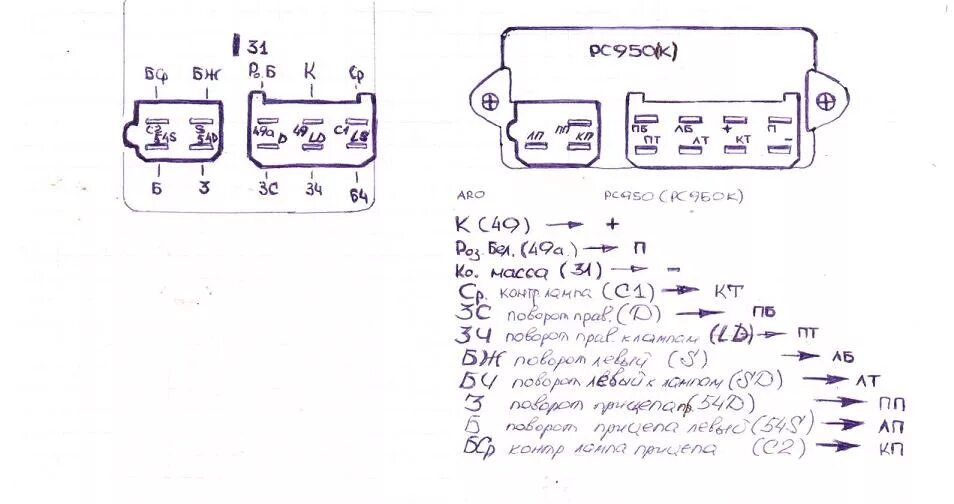 31
БЖ Ро.Б К Ср
БСр
C2 S 49а 49 C1
54S 54D D LD LS
Б З ЗС ЗЧ БЧ
РС950(К)
ЛП ПП КП
ПБ ЛБ + П
ПТ ЛТ КТ -
ARO РС950 (РС950К)
К (49) → +
Роз.Бел. (49а.) → П
Ко. масса (31) → -
Ср. контр лампа (С1) → КТ
ЗС поворот прав. (D) → ПБ
ЗЧ поворот прав. к лампам (LD) → ПТ
БЖ поворот левый (S) → ЛБ
БЧ поворот левый к лампам (SD) → ЛТ
З поворот прицепа пр. (54D) → ПП
Б поворот прицепа левый (54S) → ЛП
БСр контр лампа прицепа (С2) → КП